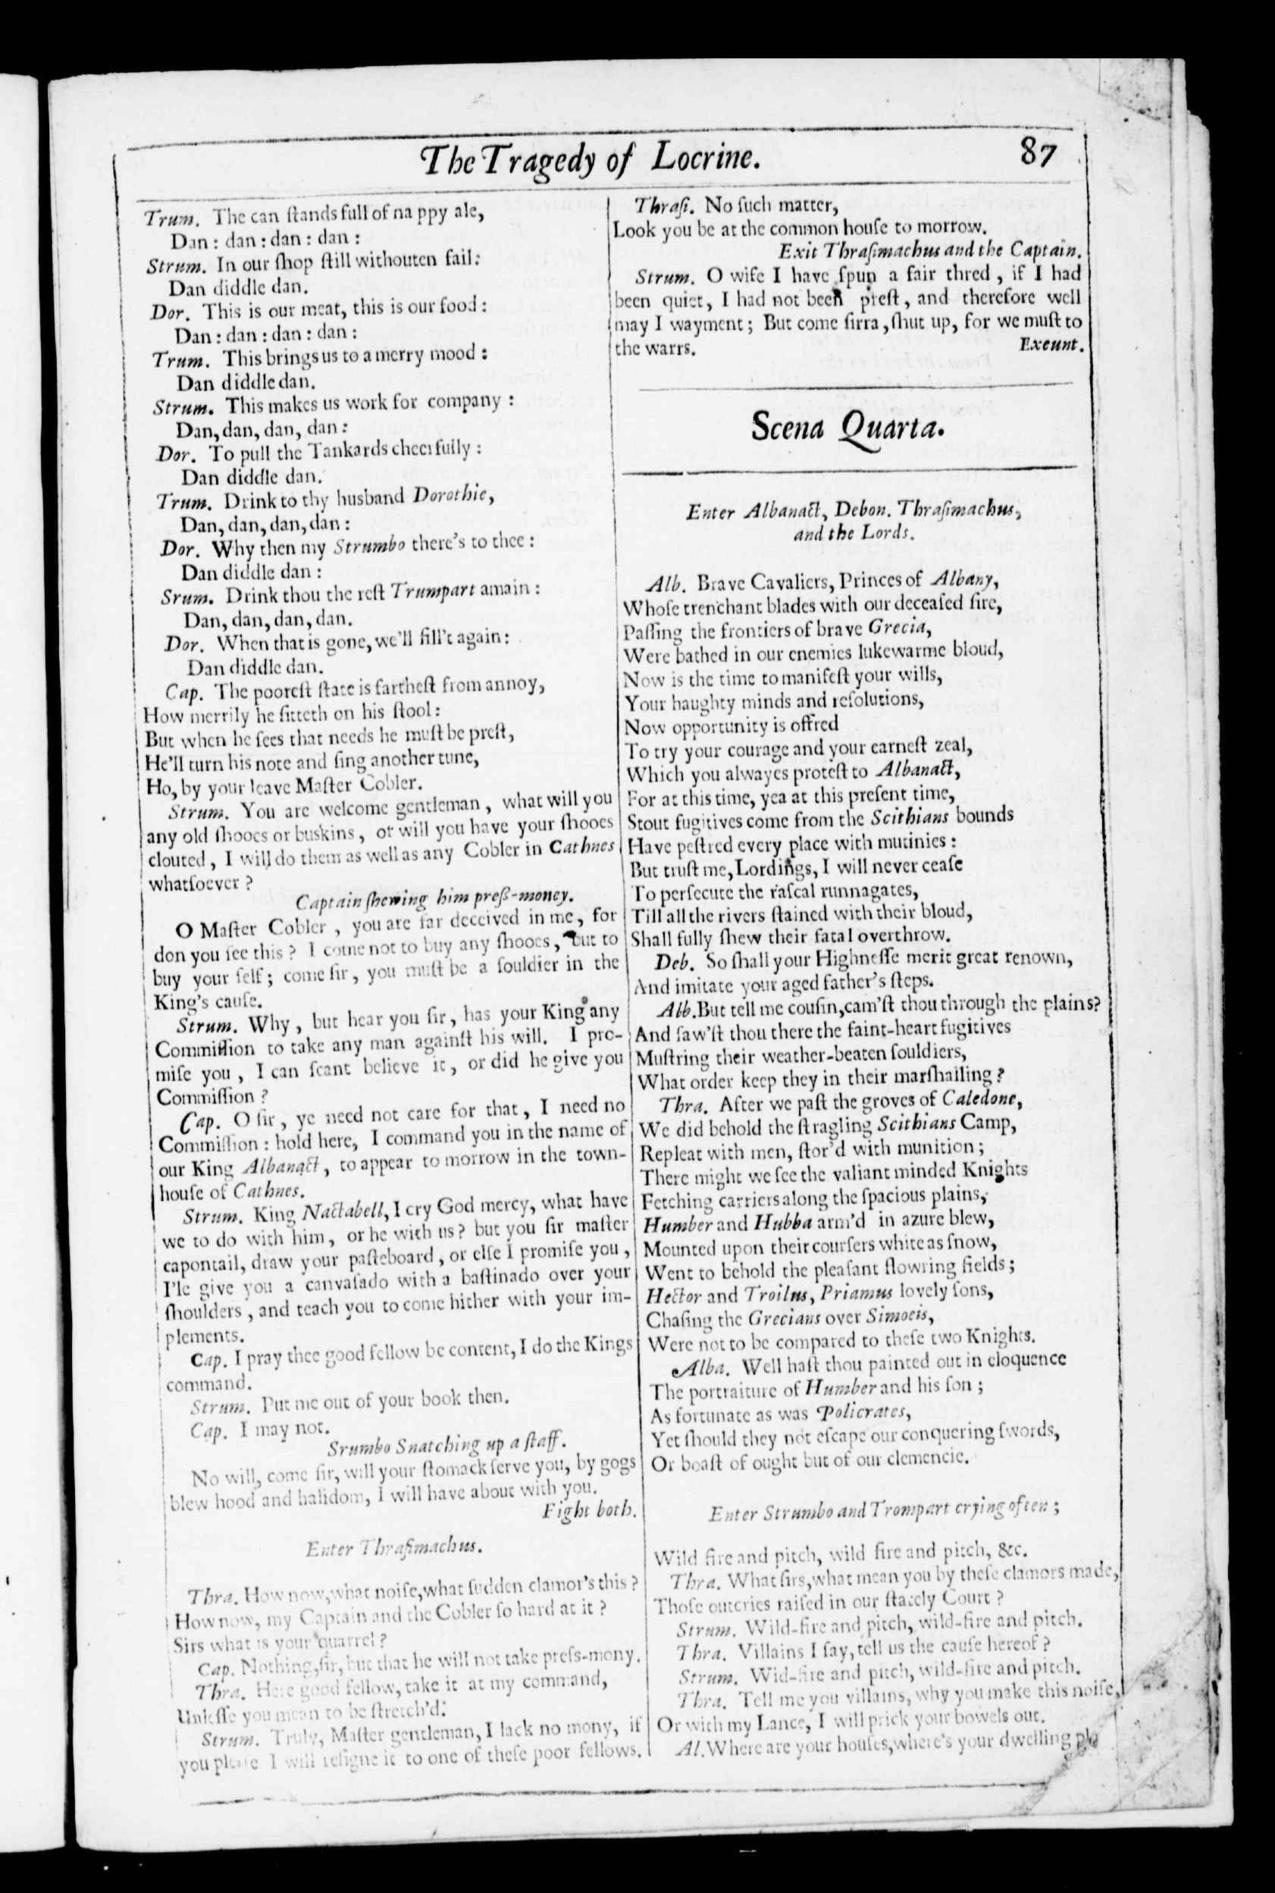 The Tragedy of Locrine. 87
Trum. The can ſtands full of na ppy ale,
Dan : dan : dan : dan :
Strum. In our ſhop ſtill withouten fail:
Dan diddle dan.
Dor. This is our meat, this is our food :
Dan : dan : dan : dan :
Trum. This brings us to a merry mood :
Dan diddle dan.
Strum. This makes us work for company :
Dan, dan, dan, dan :
Dor. To pull the Tankards cheerfully :
Dan diddle dan.
Trum. Drink to thy husband Dorothie,
Dan, dan, dan, dan :
Dor. Why then my Strumbo there's to thee :
Dan diddle dan :
Srum. Drink thou the reſt Trumpart amain :
Dan, dan, dan, dan.
Dor. When that is gone, we'll fill't again:
Dan diddle dan.
Cap. The pooreſt ſtate is fartheſt from annoy,
How merrily he ſitteth on his ſtool:
But when he ſees that needs he muſt be preſt,
He'll turn his note and ſing another tune,
Ho, by your leave Maſter Cobler.
Strum. You are welcome gentleman, what will you
any old ſhooes or buskins, or will you have your ſhooes
clouted, I will do them as well as any Cobler in Cathnes
whatſoever ?
Captain ſhewing him preß-money.
O Maſter Cobler, you are far deceived in me, for
don you ſee this ? I come not to buy any ſhooes, but to
buy your ſelf; come ſir, you muſt be a ſouldier in the
King's cauſe.
Strum. Why, but hear you ſir, has your King any
Commiſſion to take any man againſt his will. I pro-
miſe you, I can ſcant believe it, or did he give you
Commiſſion ?
Cap. O ſir, ye need not care for that, I need no
Commiſſion : hold here, I command you in the name of
our King Albanact, to appear to morrow in the town-
houſe of Cathnes.
Strum. King Nactabell, I cry God mercy, what have
we to do with him, or he with us? but you ſir maſter
capontail, draw your paſteboard, or elſe I promiſe you,
I'le give you a canvaſado with a baſtinado over your
ſhoulders, and teach you to come hither with your im-
plements.
Cap. I pray thee good fellow be content, I do the Kings
command.
Strum. Put me out of your book then.
Cap. I may not.
Srumbo Snatching up a ſtaff.
No will, come ſir, will your ſtomack ſerve you, by gogs
blew hood and halidom, I will have about with you.
Fight both.
Enter Thraſimachus.
Thra. How now, what noiſe, what ſudden clamor's this ?
How now, my Captain and the Cobler ſo hard at it ?
Sirs what is your quarrel ?
Cap. Nothing, ſir, but that he will not take preſs-mony.
Thra. Here good fellow, take it at my command,
Unleſſe you mean to be ſtretch'd.
Strum. Truly, Maſter gentleman, I lack no mony, if
you pleaſe I will reſigne it to one of theſe poor fellows.
Thraſi. No ſuch matter,
Look you be at the common houſe to morrow.
Exit Thraſimachus and the Captain.
Strum. O wife I have ſpun a fair thred, if I had
been quiet, I had not been preſt, and therefore well
may I wayment; But come ſirra, ſhut up, for we muſt to
the warrs. Exeunt.
Scena Quarta.
Enter Albanact, Debon. Thraſimachus,
and the Lords.
Alb. Brave Cavaliers, Princes of Albany,
Whoſe trenchant blades with our deceaſed ſire,
Paſſing the frontiers of brave Grecia,
Were bathed in our enemies lukewarme bloud,
Now is the time to manifeſt your wills,
Your haughty minds and reſolutions,
Now opportunity is offred
To try your courage and your earneſt zeal,
Which you alwayes proteſt to Albanact,
For at this time, yea at this preſent time,
Stout fugitives come from the Scithians bounds
Have peſtred every place with mutinies :
But truſt me, Lordings, I will never ceaſe
To perſecute the raſcal runnagates,
Till all the rivers ſtained with their bloud,
Shall fully ſhew their fatal overthrow.
Deb. So ſhall your Highneſſe merit great renown,
And imitate your aged father's ſteps.
Alb. But tell me couſin, cam'ſt thou through the plains?
And ſaw'ſt thou there the faint-heart fugitives
Muſtring their weather-beaten ſouldiers,
What order keep they in their marſhailing ?
Thra. After we paſt the groves of Caledone,
We did behold the ſtragling Scithians Camp,
Repleat with men, ſtor'd with munition;
There might we ſee the valiant minded Knights
Fetching carriers along the ſpacious plains,
Humber and Hubba arm'd in azure blew,
Mounted upon their courſers white as ſnow,
Went to behold the pleaſant flowring fields;
Hector and Troilus, Priamus lovely ſons,
Chaſing the Grecians over Simoeis,
Were not to be compared to theſe two Knights.
Alba. Well haſt thou painted out in eloquence
The portraiture of Humber and his ſon;
As fortunate as was Policrates,
Yet ſhould they not eſcape our conquering ſwords,
Or boaſt of ought but of our clemencie.
Enter Strumbo and Trompart crying often;
Wild fire and pitch, wild fire and pitch, &c.
Thra. What ſirs, what mean you by theſe clamors made,
Thoſe outcries raiſed in our ſtately Court ?
Strum. Wild-fire and pitch, wild-fire and pitch.
Thra. Villains I ſay, tell us the cauſe hereof ?
Strum. Wid-fire and pitch, wild-fire and pitch.
Thra. Tell me you villains, why you make this noiſe,
Or with my Lance, I will prick your bowels out.
Al. Where are your houſes, where's your dwelling